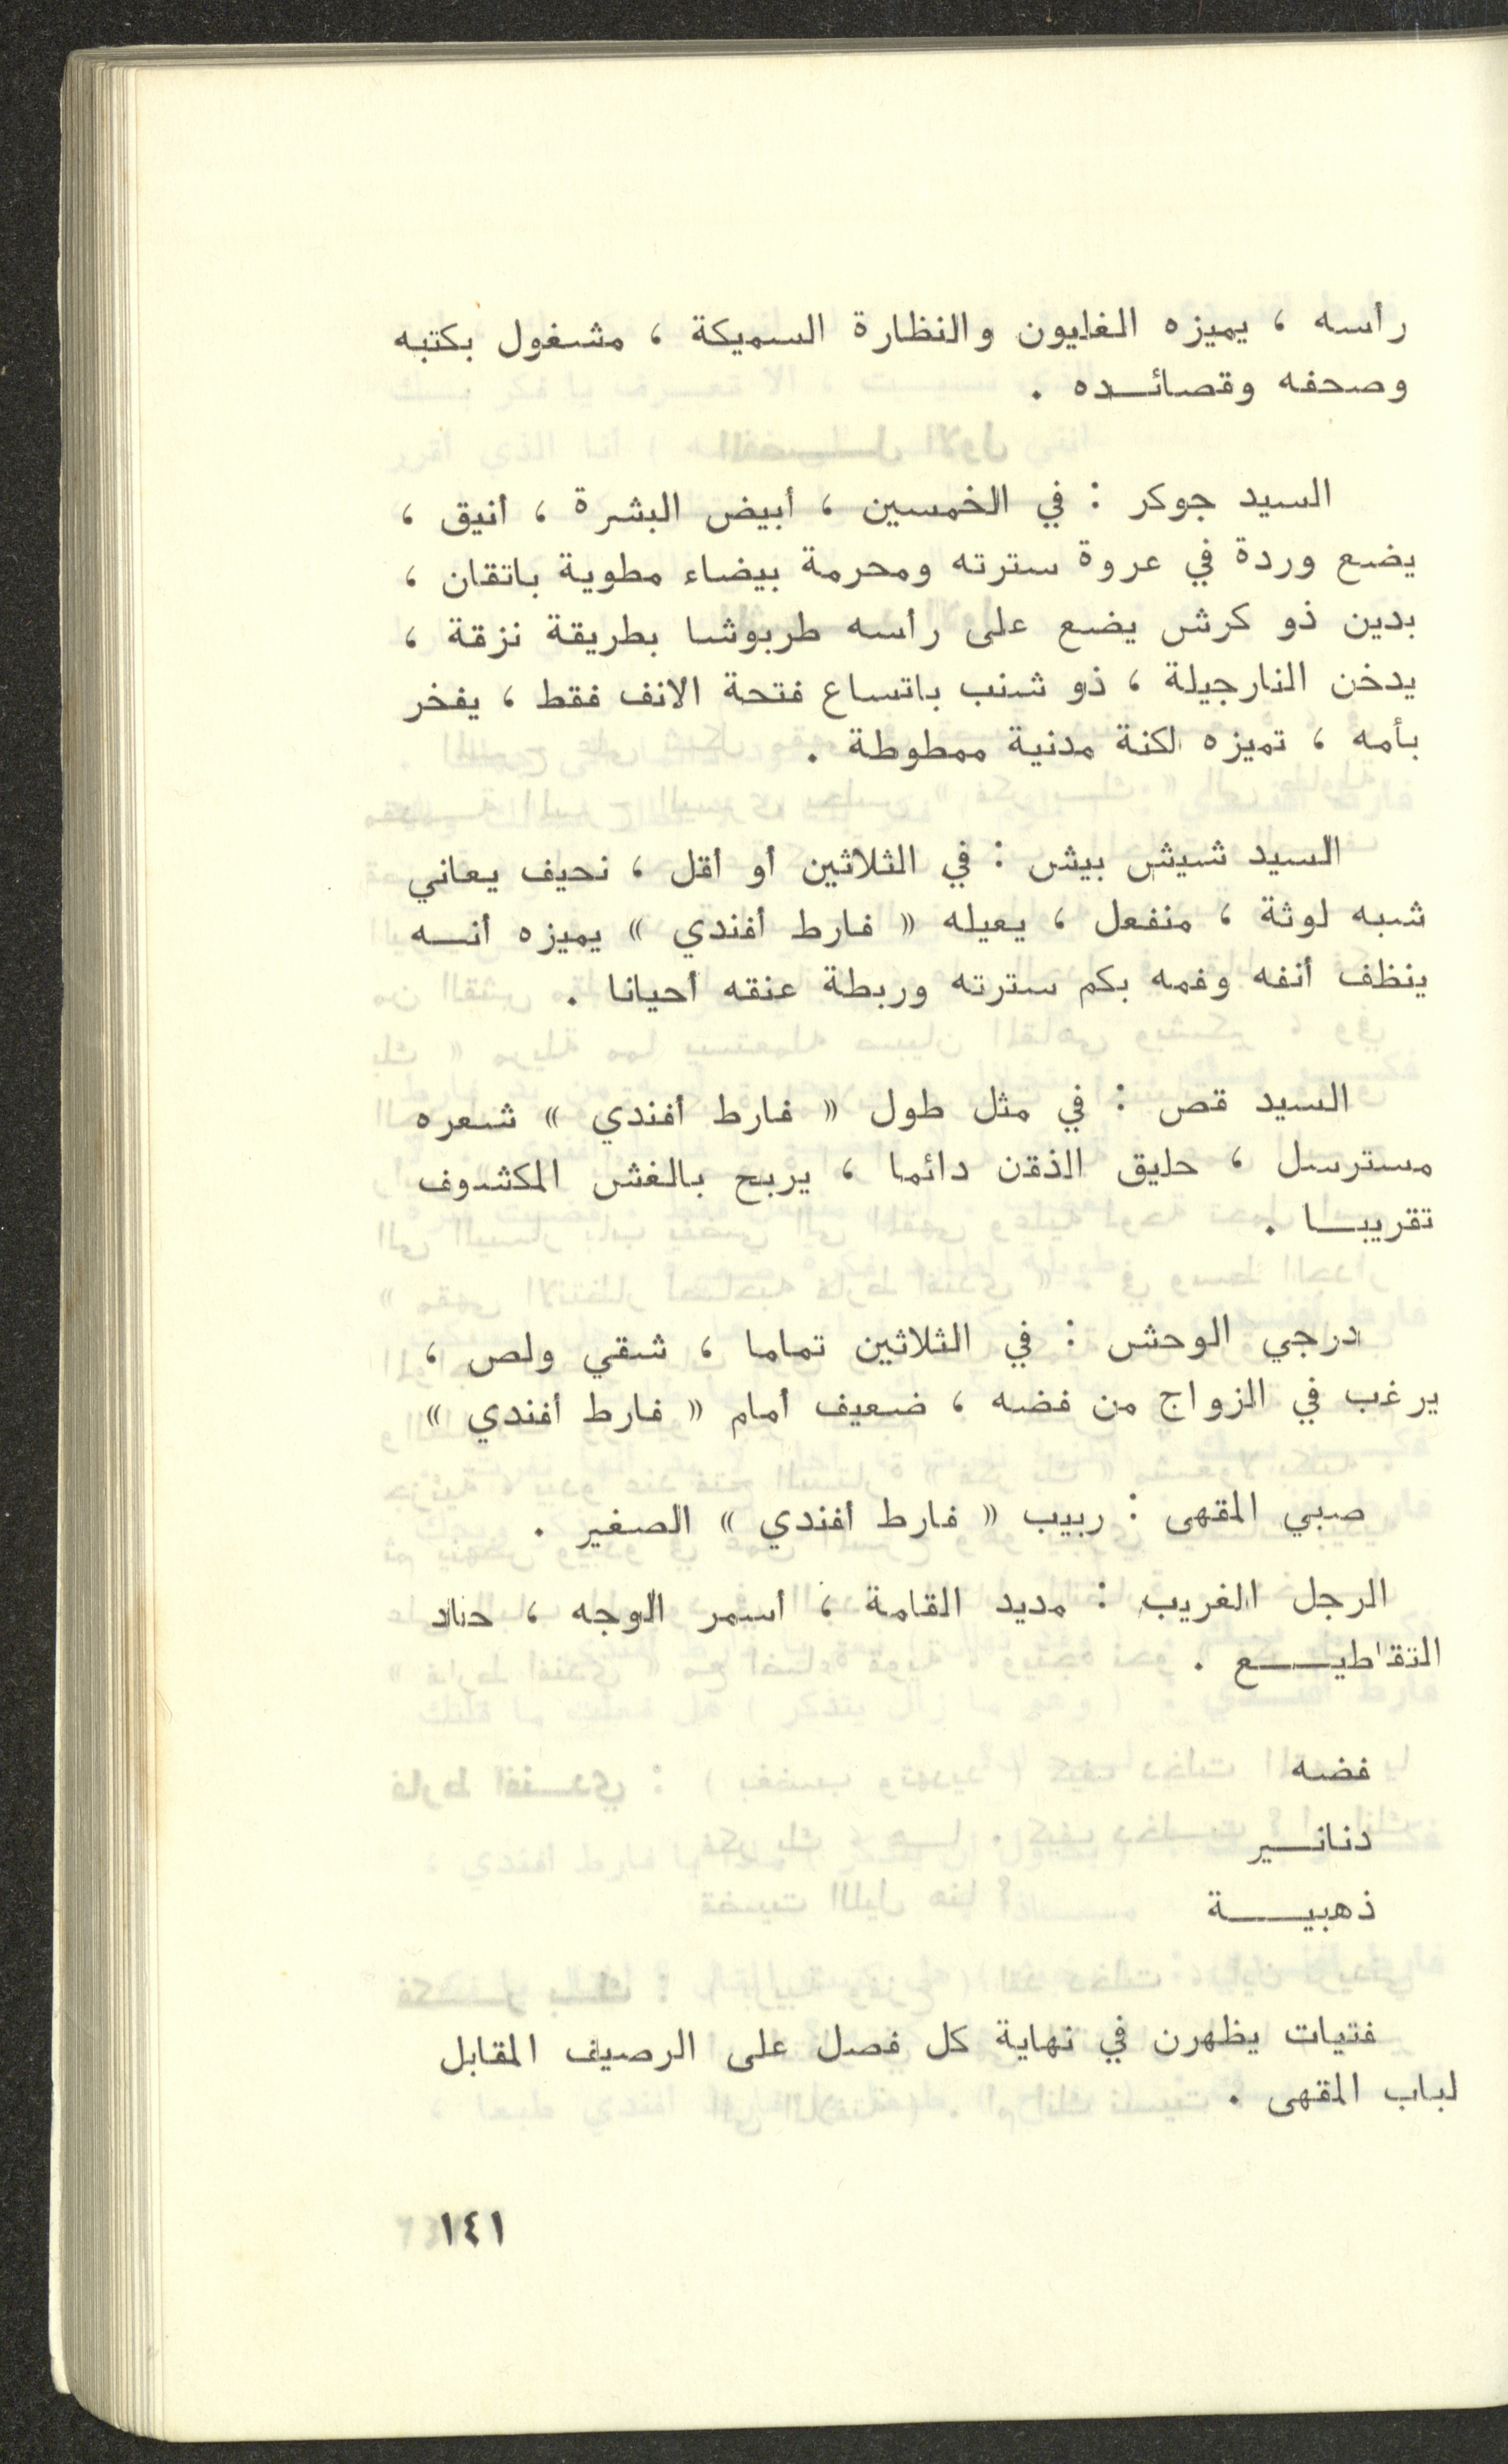 رأسه ، يميزه الغليون والنظارة السميكة ، مشغول بكتبه
وصحفه وقصائـــده .
السيد جوكر : في الخمسين ، أبيض البشرة ، أنيق ،
يضع وردة في عروة سترته ومحرمة بيضاء مطوية باتقان ،
بدين ذو كرش يضع على رأسه طربوشا بطريقة نزقة ،
يدخن النارجيلة ، ذو شنب باتساع فتحة الانف فقط ، يفخر
بأمه ، تميزه لكنة مدنية ممطوطة .
السيد شيش بيش : في الثلاثين أو أقل ، نحيف يـعاني
شبه لوثة ، منفعل ، يعيله « فارط أفندي » يميزه أنــه
ينظف أنفه وفمه بكم سترته وربطة عنقه أحيانا .
السيد قص : في مثل طول « فارط أفندي » شعره
مسترسل ، حليق الذقن دائما ، يربح بالغش المكشوف
تقريبــا .
درجي الوحش : في الثلاثين تماما ، شقي ولص ،
يرغب في الزواج من فضه ، ضعيف أمام « فارط أفندي »
صبي المقهى : ربيب « فارط أفندي » الصغير .
الرجل الغريب : مديد القامة ، أسمر الوجه ، حاد
التقاطيـــــع .
فضه
دنانــير
ذهبيـــــة
فتيات يظهرن في نهاية كل فصل على الرصيف المقابل
لباب المقهى .
١٤١